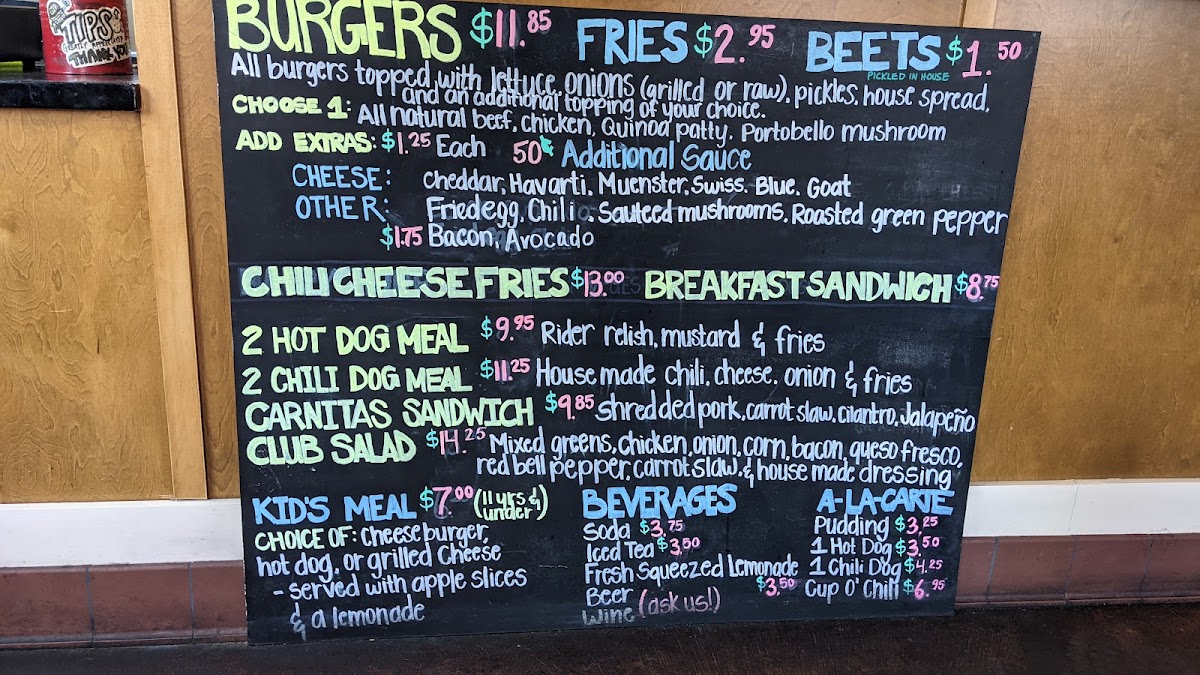 TIPS
BURGERS $11.85
FRIES $2.95
BEETS $1.50
PICKLED IN HOUSE
All burgers topped with lettuce, onions (grilled or raw), pickles, house spread,
and an additional topping of your choice.
CHOOSE 1: All natural beef, chicken, Quinoa patty, Portobello mushroom
ADD EXTRAS: $1.25 Each 50¢ Additional Sauce
CHEESE: cheddar, Havarti, Muenster, Swiss, Blue, Goat
OTHER: Fried egg, Chili, Sauteed mushrooms, Roasted green pepper
$1.75 Bacon, Avocado
CHILI CHEESE FRIES $13.00 BREAKFAST SANDWICH $8.75
2 HOT DOG MEAL $9.95 Rider relish, mustard & fries
2 CHILI DOG MEAL $11.25 House made chili, cheese, onion & fries
CARNITAS SANDWICH $9.85 shredded pork, carrot slaw, cilantro, Jalapeño
CLUB SALAD $14.25 Mixed greens, chicken, onion, corn, bacon, queso fresco,
red bell pepper, carrot slaw, & house made dressing
KID'S MEAL $7.00 (11 yrs & under)
CHOICE OF: cheese burger,
hot dog, or grilled cheese
- served with apple slices
& a lemonade
BEVERAGES
Soda $3.75
Iced Tea $3.50
Fresh Squeezed Lemonade
$3.50
Beer
Wine (ask us!)
A-LA-CARTE
Pudding $3.25
1 Hot Dog $3.50
1 Chili Dog $4.25
Cup O' Chili $6.95